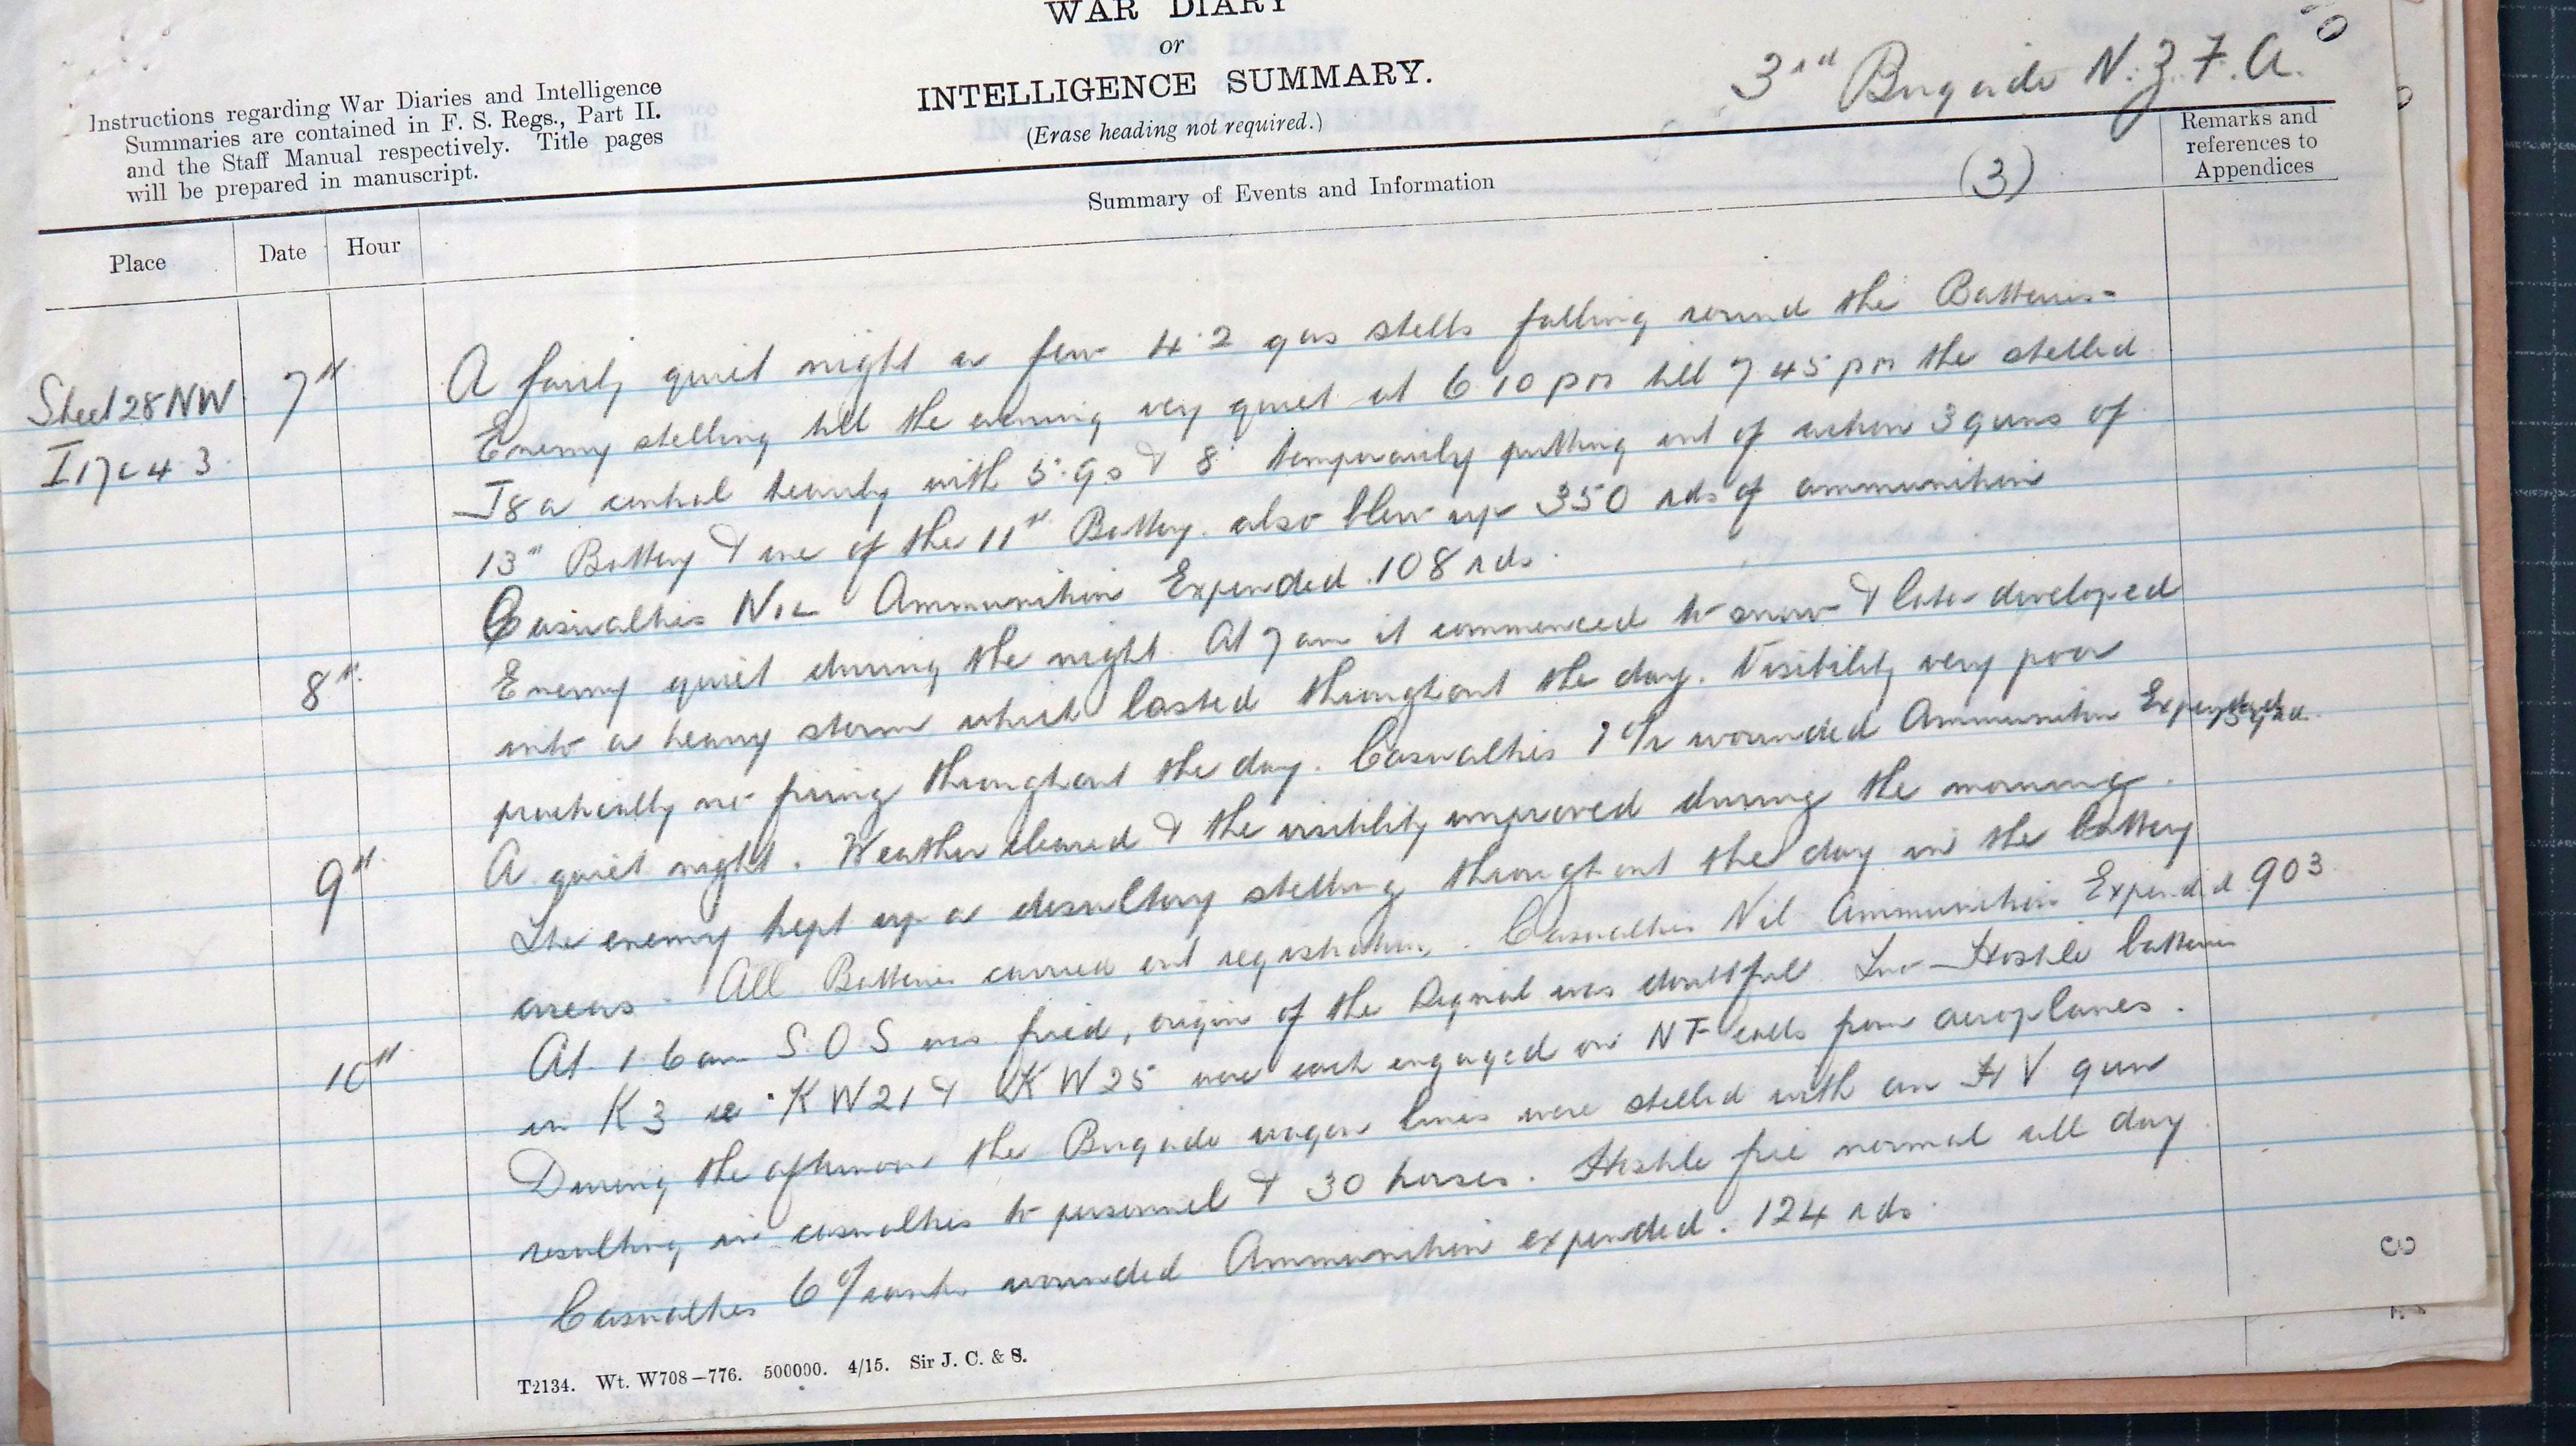 WAR DIARY
or
INTELLIGENCE SUMMARY.
(Erase heading not required.)
3rd Brigade N.Z.F.A.
Instructions regarding War Diaries and Intelligence
Summaries are contained in F. S. Regs., Part II.
and the Staff Manual respectively. Title pages
will be prepared in manuscript.
Summary of Events and Information
(3)
Remarks and
references to
Appendices
Place
Date
Hour
Sheet 28 NW
I 17 c 4 3.
7th
A fairly quiet night a few 4.2 gas shells falling round the Batteries-
Enemy shelling till the evening very quiet at 6 10 pm till 7 45 pm the shelled
J8a central heavily with 5.9s & 8" temporarily putting out of action 3 guns of
13th Battery & one of the 11th Battery. also blew up 350 rds of ammunition
Casualties NIL Ammunition Expended .108 rds.
8th.
Enemy quiet during the night. At 7 am it commenced to snow & later developed
into a heavy storm which lasted throughout the day. Visibility very poor
practically no firing throughout the day. Casualties 1 O/r wounded Ammunition Expended
9th
A quiet night. Weather cleared & the visibility improved during the morning.
The enemy kept up a desultory shelling throughout the day in the battery
areas. All Batteries carried out registration. Casualties Nil Ammunition Expended 903
10th
At 1.6 am S.O.S was fired, origin of the signal was doubtful Two Hostile batteries
in K3 ie KW21 & KW25 were each engaged on NF calls from aeroplanes.
During the afternoon the Brigade wagon lines were shelled with an HV gun
resulting in casualties to personnel & 30 horses. Hostile fire normal all day
Casualties 6 O/ranks wounded Ammunition expended. 124 rds.
T2134. Wt. W708—776. 500000. 4/15. Sir J. C. & S.